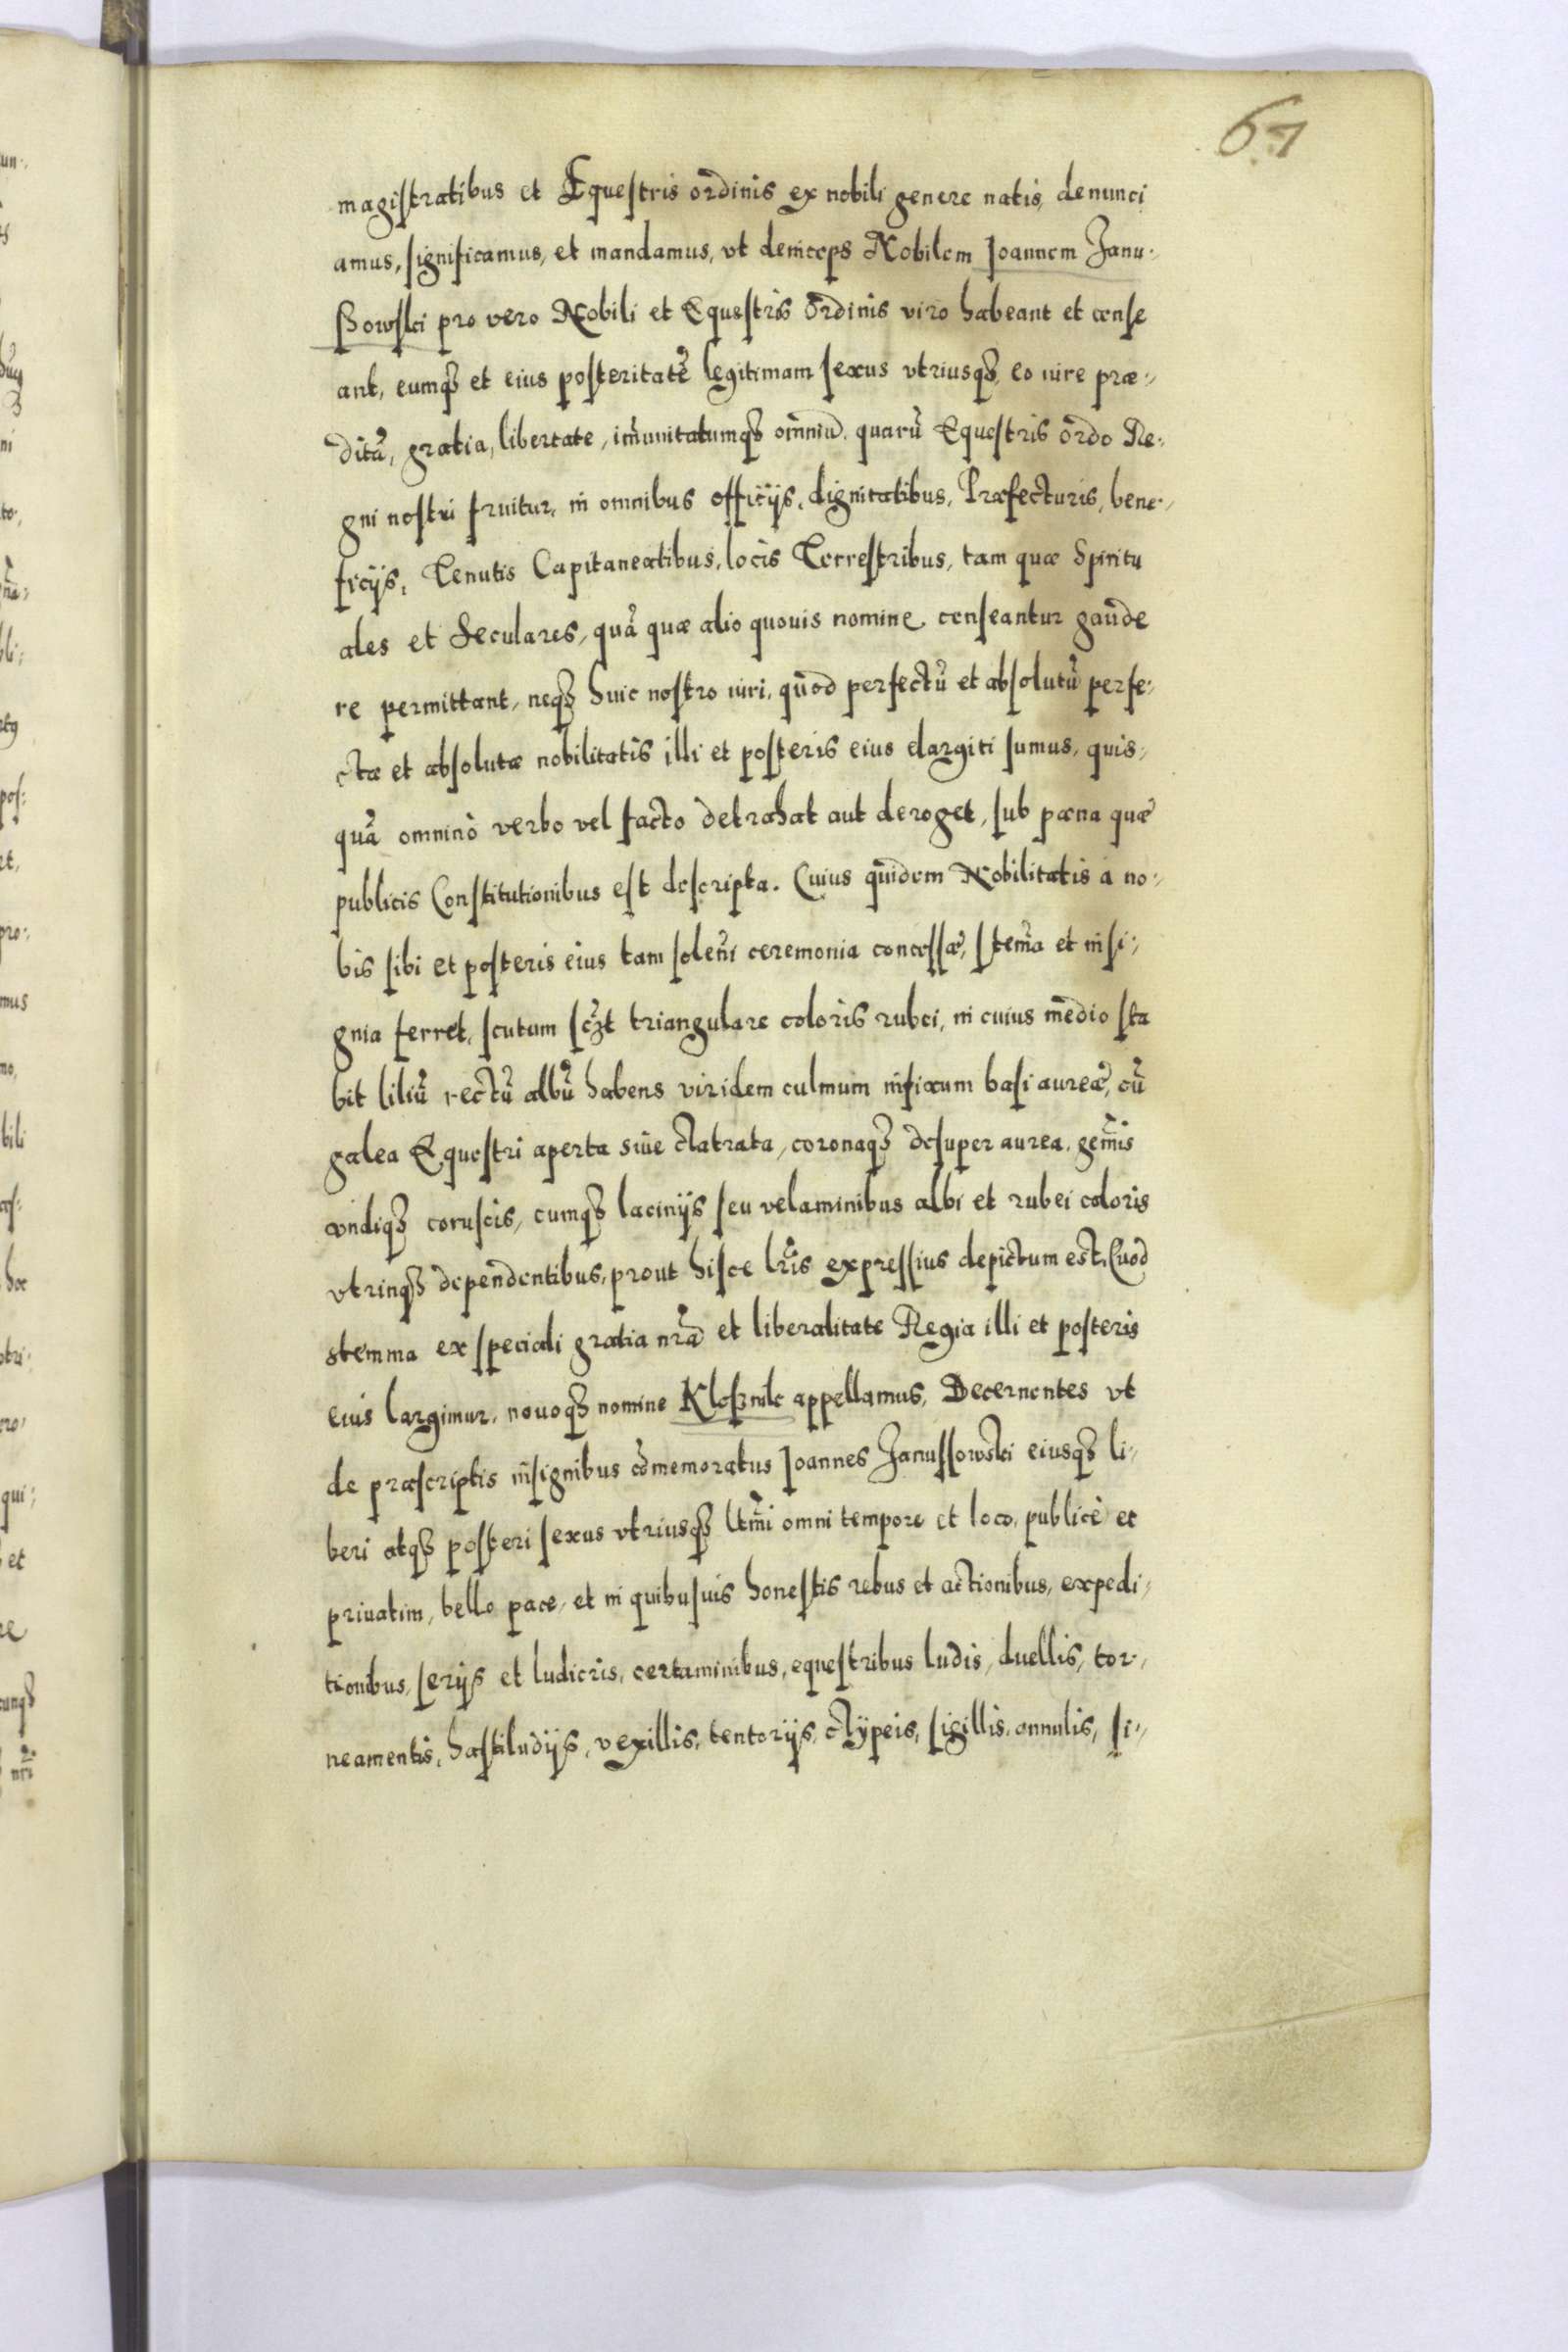 67
magistratibus et Equestris ordinis ex nobili genere natis, denunci
amus, significamus, et mandamus, vt deinceps Nobilem Joannem Janu-
ßowski pro vero Nobili et Equestris ordinis viro habeant et cense
ant, eumqȝ et eius posteritatẽ legitimam sexus vtriusqȝ, eo iure præ-
ditã, gratia, libertate, im̃unitatumqȝ omniũ, quarũ Equestris ordo Re-
gni nostri fruitur, in omnibus officijs, dignitatibus, Præfecturis, bene-
ficijs, Tenutis Capitaneatibus, locis Terrestribus, tam quæ Spiritu
ales et Seculares, quã quæ alio quouis nomine censeantur gaude
re permittant, neqȝ huic nostro iuri, quod perfectũ et absolutũ perfe-
ctæ et absolutæ nobilitatis illi et posteris eius elargiti sumus, quis-
quã omninò verbo vel facto detrahat aut deroget, sub pæna quæ
publicis Constitutionibus est descripta. Cuius quidem Nobilitatis à no-
bis sibi et posteris eius tam solen̄i ceremonia concessæ, stem̃a et insi-
gnia ferret, scutum scȝt triangulare coloris rubei, in cuius medio sta
bit liliũ rectũ albũ habens viridem culmum infixum basi aureæ, cũ
galea Equestri aperta siue clatrata, coronaqȝ desuper aurea, gem̃is
vndiqȝ coruscis, cumqȝ lacinijs seu velaminibus albi et rubei coloris
vtrinqȝ dependentibus, prout hisce lr̃is expressius depictum est. Quod
stemma ex speciali gratia nr̃a et liberalitate Regia illi et posteris
eius largimur, nouoqȝ nomine Kloßnik appellamus, Decernentes vt
de præscriptis insignibus cõmemoratus Joannes Janussowski eiusqȝ li-
beri atqȝ posteri sexus vtriusqȝ ltm̃i omni tempore et loco, publicè et
priuatim, bello pace, et in quibusuis honestis rebus et actionibus, expedi-
tionibus, serijs et ludicris, certaminibus, equestribus ludis, duellis, tor-
neamentis, hastiludijs, vexillis, tentorijs, clÿpeis, sigillis, annulis, si-